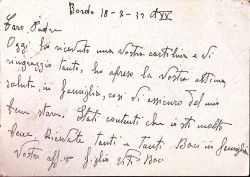 Bordo 18-8-37 XV
Caro Padre
Oggi ho ricevuto una vostra cartolina e vi
ringrazio tanto, ho apreso la vostra ottima
salute in famiglia, così vi assicuro del mio
bene stare. Stati contenti che io sto molto
bene. Ricevete tanti e tanti Baci in famiglia
Vostro aff.mo figlio